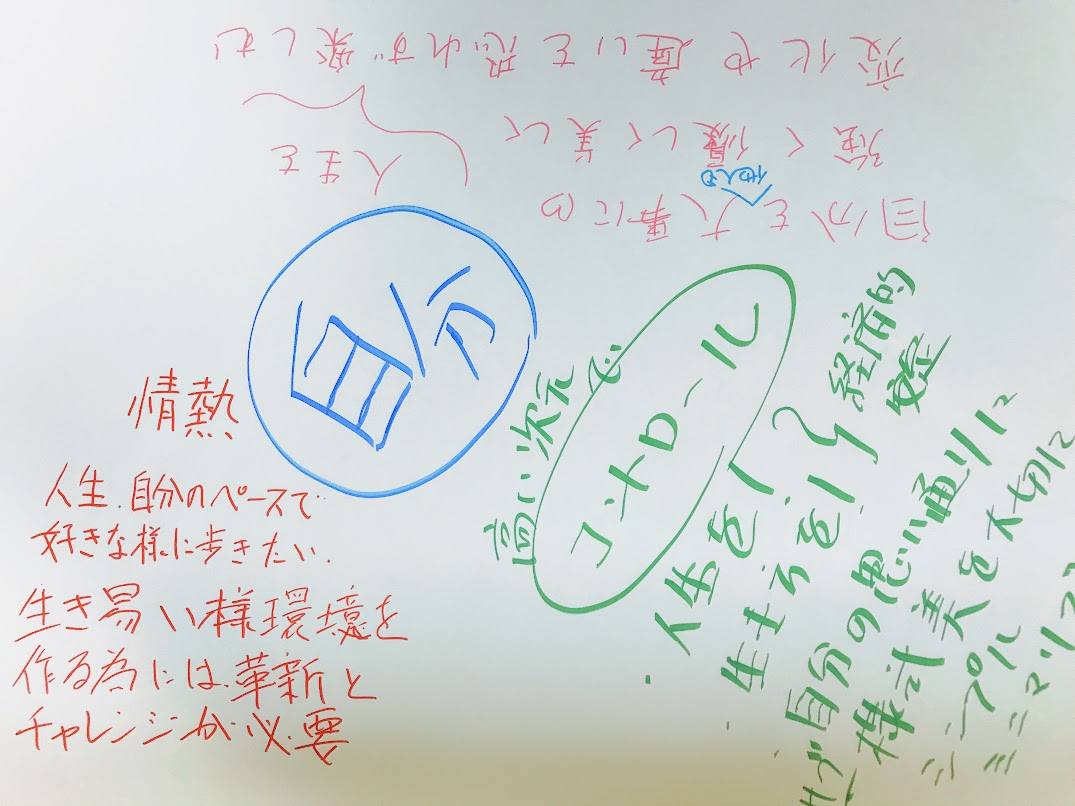 自分
自分を大事に
他人も
強く優しく美しく
変化や違いを恐れず楽しむ
人生を
情熱
人生、自分のペースで
好きな様に歩きたい.
生き易い様環境を
作る為には、革新と
チャレンジが必要
高い次元で
コントロール
・人生を
経済的
自分の思い通りに
様式美を大切に
シンプル
ミニマリ